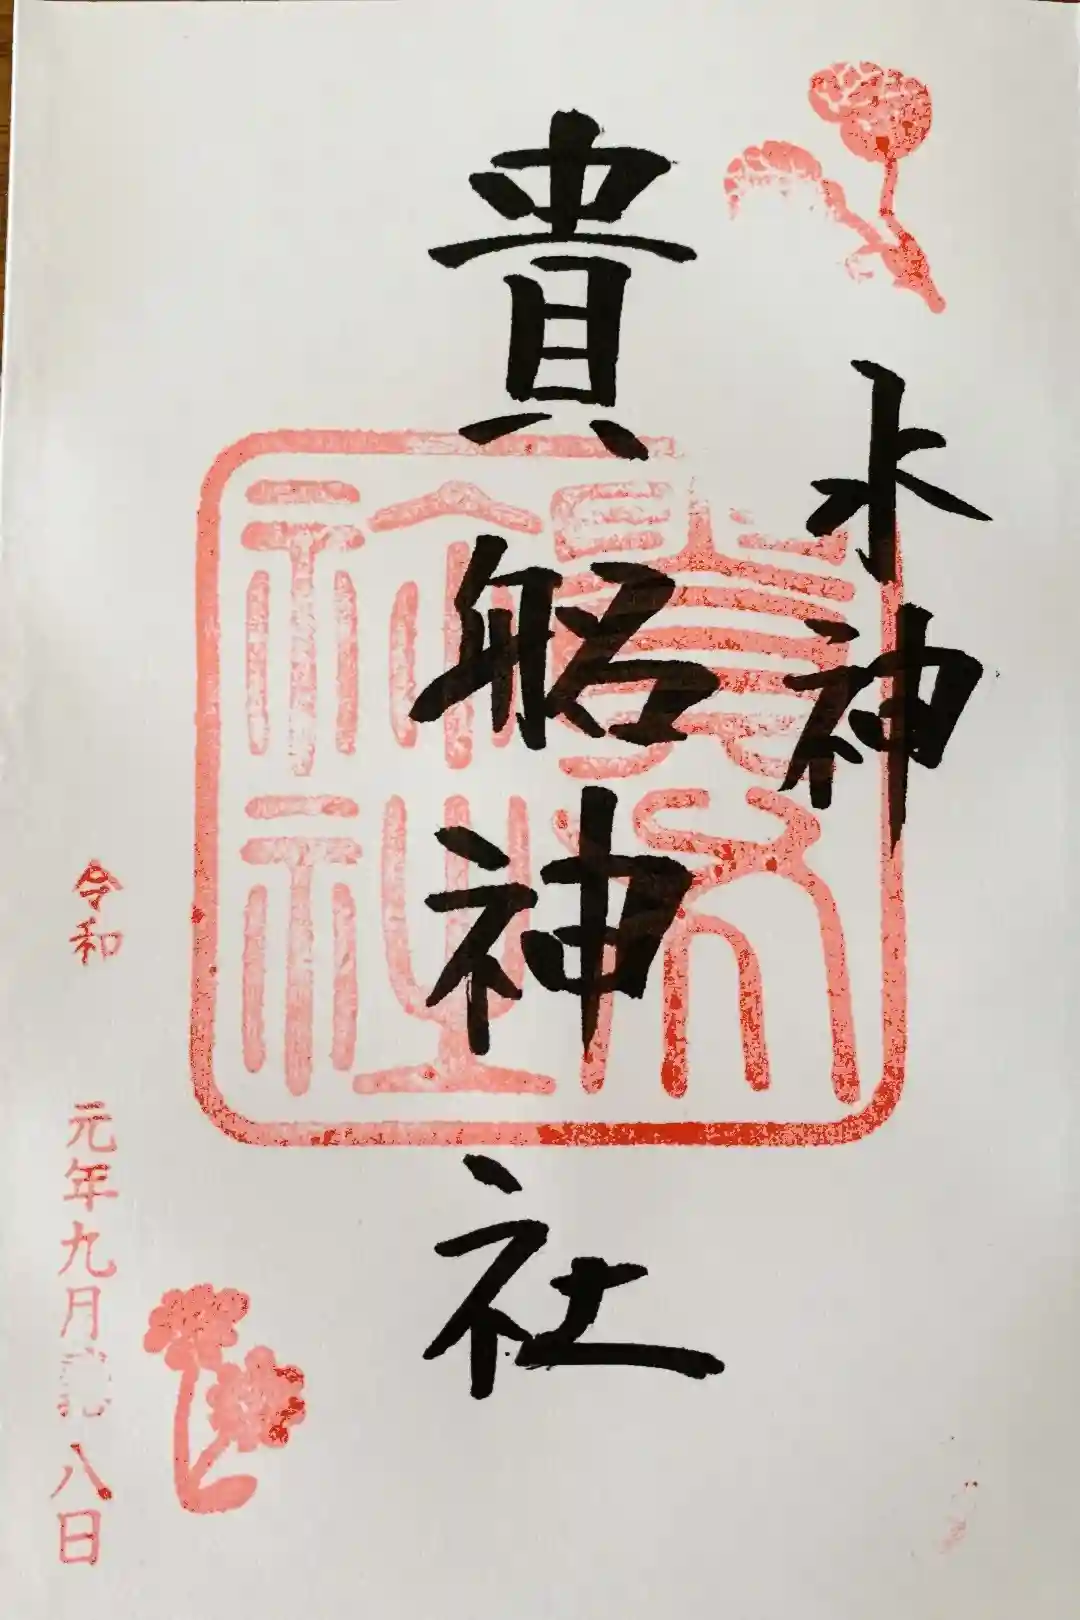 水神
貴船神社
貴船神社
令和
元年九月 八日